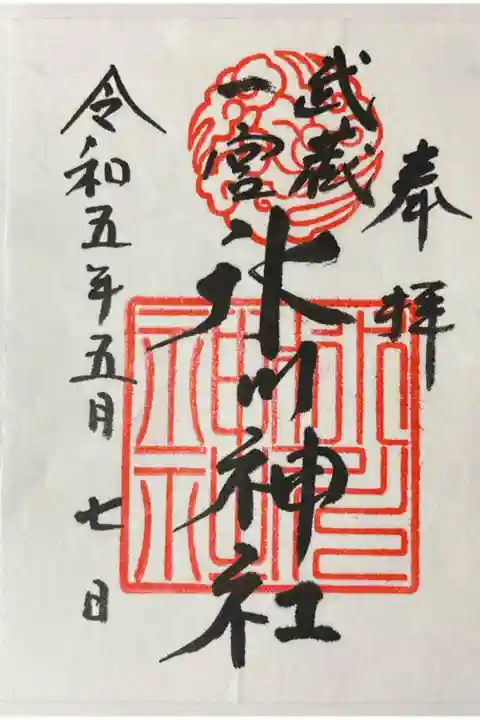 奉拝
武蔵
一宮
氷川神社
令和五年五月七日
氷川
神社